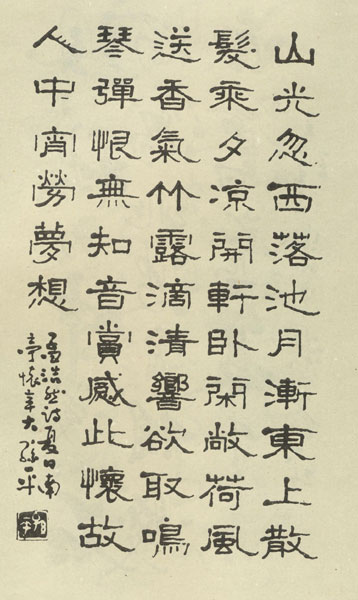 山光忽西落池月漸東上散
髮乘夕凉開軒卧閑敞荷風
送香氣竹露滴清響欲取鳴
琴彈恨無知音賞感此懷故
人中宵勞夢想
孟浩然诗夏日南
亭懷辛大